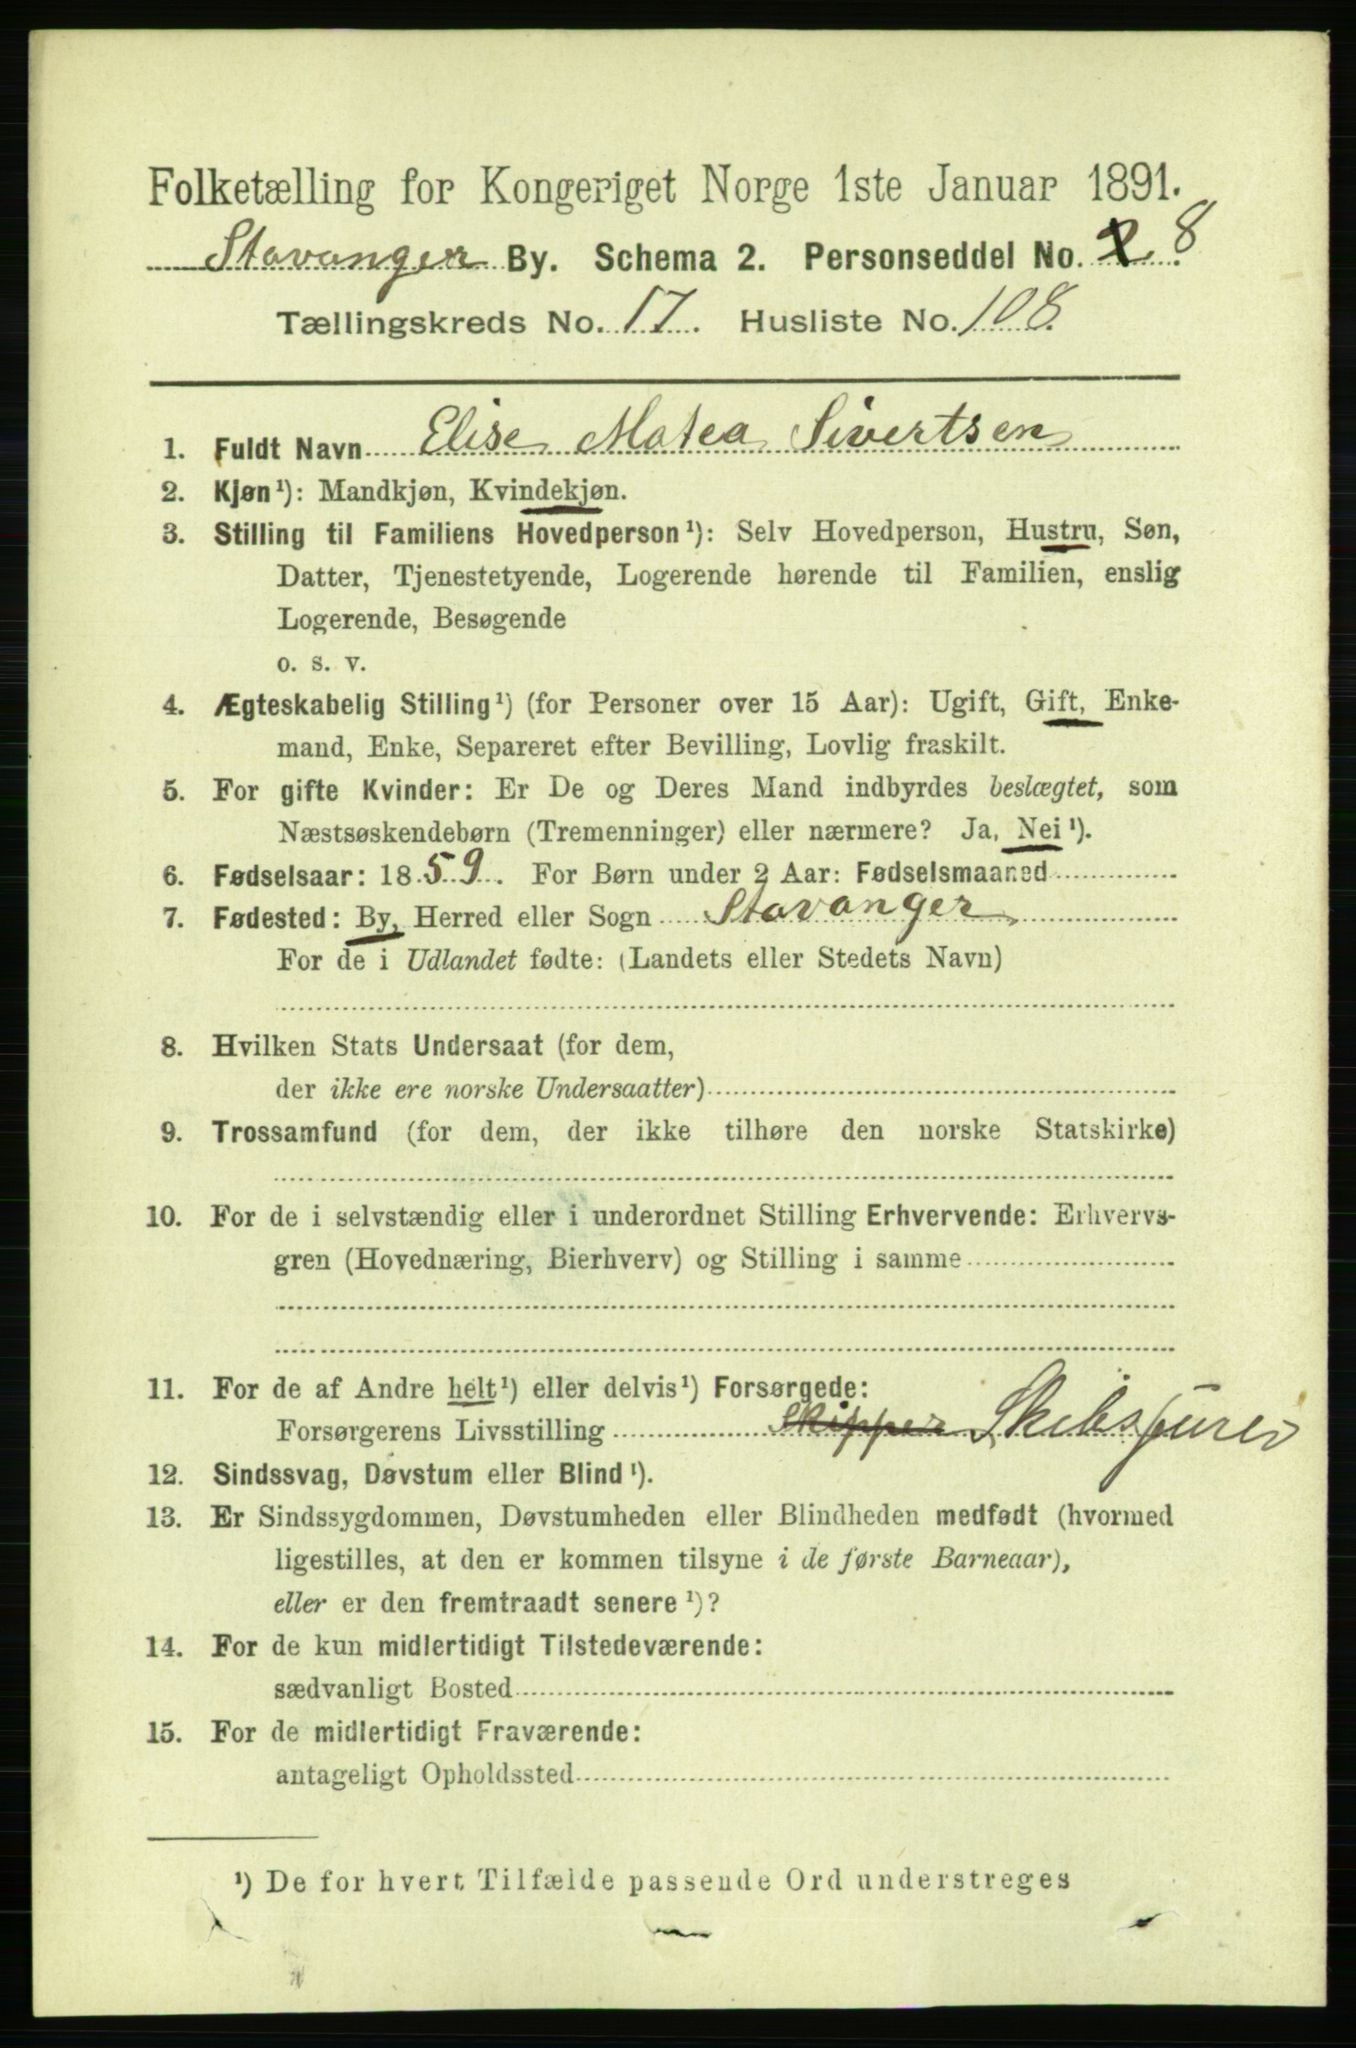 Folketælling for Kongeriget Norge 1ste Januar 1891.
Stavanger By. Schema 2. Personseddel No. 2. 8
Tællingskreds No. 17. Husliste No. 108.
1. Fuldt Navn Elise Matea Sivertsen
2. Kjøn¹): Mandkjøn, Kvindekjøn.
3. Stilling til Familiens Hovedperson¹): Selv Hovedperson, Hustru, Søn,
Datter, Tjenestetyende, Logerende hørende til Familien, enslig
Logerende, Besøgende
o. s. v.
4. Ægteskabelig Stilling¹) (for Personer over 15 Aar): Ugift, Gift, Enke-
mand, Enke, Separeret efter Bevilling, Lovlig fraskilt.
5. For gifte Kvinder: Er De og Deres Mand indbyrdes beslægtet, som
Næstsøskendebørn (Tremenninger) eller nærmere? Ja, Nei¹).
6. Fødselsaar: 1859. For Børn under 2 Aar: Fødselsmaaned
7. Fødested: By, Herred eller Sogn Stavanger
For de i Udlandet fødte: (Landets eller Stedets Navn)
8. Hvilken Stats Undersaat (for dem,
der ikke ere norske Undersaatter)
9. Trossamfund (for dem, der ikke tilhøre den norske Statskirke)
10. For de i selvstændig eller i underordnet Stilling Erhvervende: Erhvervs-
gren (Hovednæring, Bierhverv) og Stilling i samme
11. For de af Andre helt¹) eller delvis¹) Forsørgede:
Forsørgerens Livsstilling Skipper Skibsfører
12. Sindssvag, Døvstum eller Blind¹).
13. Er Sindssygdommen, Døvstumheden eller Blindheden medfødt (hvormed
ligestilles, at den er kommen tilsyne i de første Barneaar),
eller er den fremtraadt senere¹)?
14. For de kun midlertidigt Tilstedeværende:
sædvanligt Bosted
15. For de midlertidigt Fraværende:
antageligt Opholdssted
¹) De for hvert Tilfælde passende Ord understreges